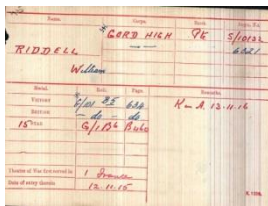 Name. Corps. Rank. Regtl. No.
RIDDELL GORD HIGH Pte S/10132
William
Medal. Roll. Page. Remarks.
VICTORY 634 K in A. 13.11.16
BRITISH - do - do
15 STAR G/1.B6
Theatre of War first served in 1 France
Date of entry therein 12.11.15